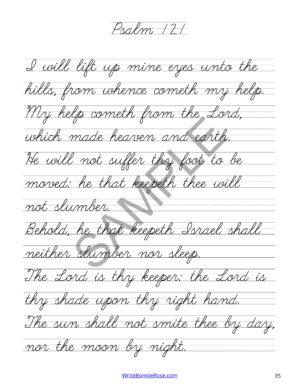 Psalm 121
I will lift up mine eyes unto the
hills, from whence cometh my help.
My help cometh from the Lord,
which made heaven and earth.
He will not suffer thy foot to be
moved: he that keepeth thee will
not slumber.
Behold, he that keepeth Israel shall
neither slumber nor sleep.
The Lord is thy keeper: the Lord is
thy shade upon thy right hand.
The sun shall not smite thee by day,
nor the moon by night.
SAMPLE
WriteBonnieRose.com
35